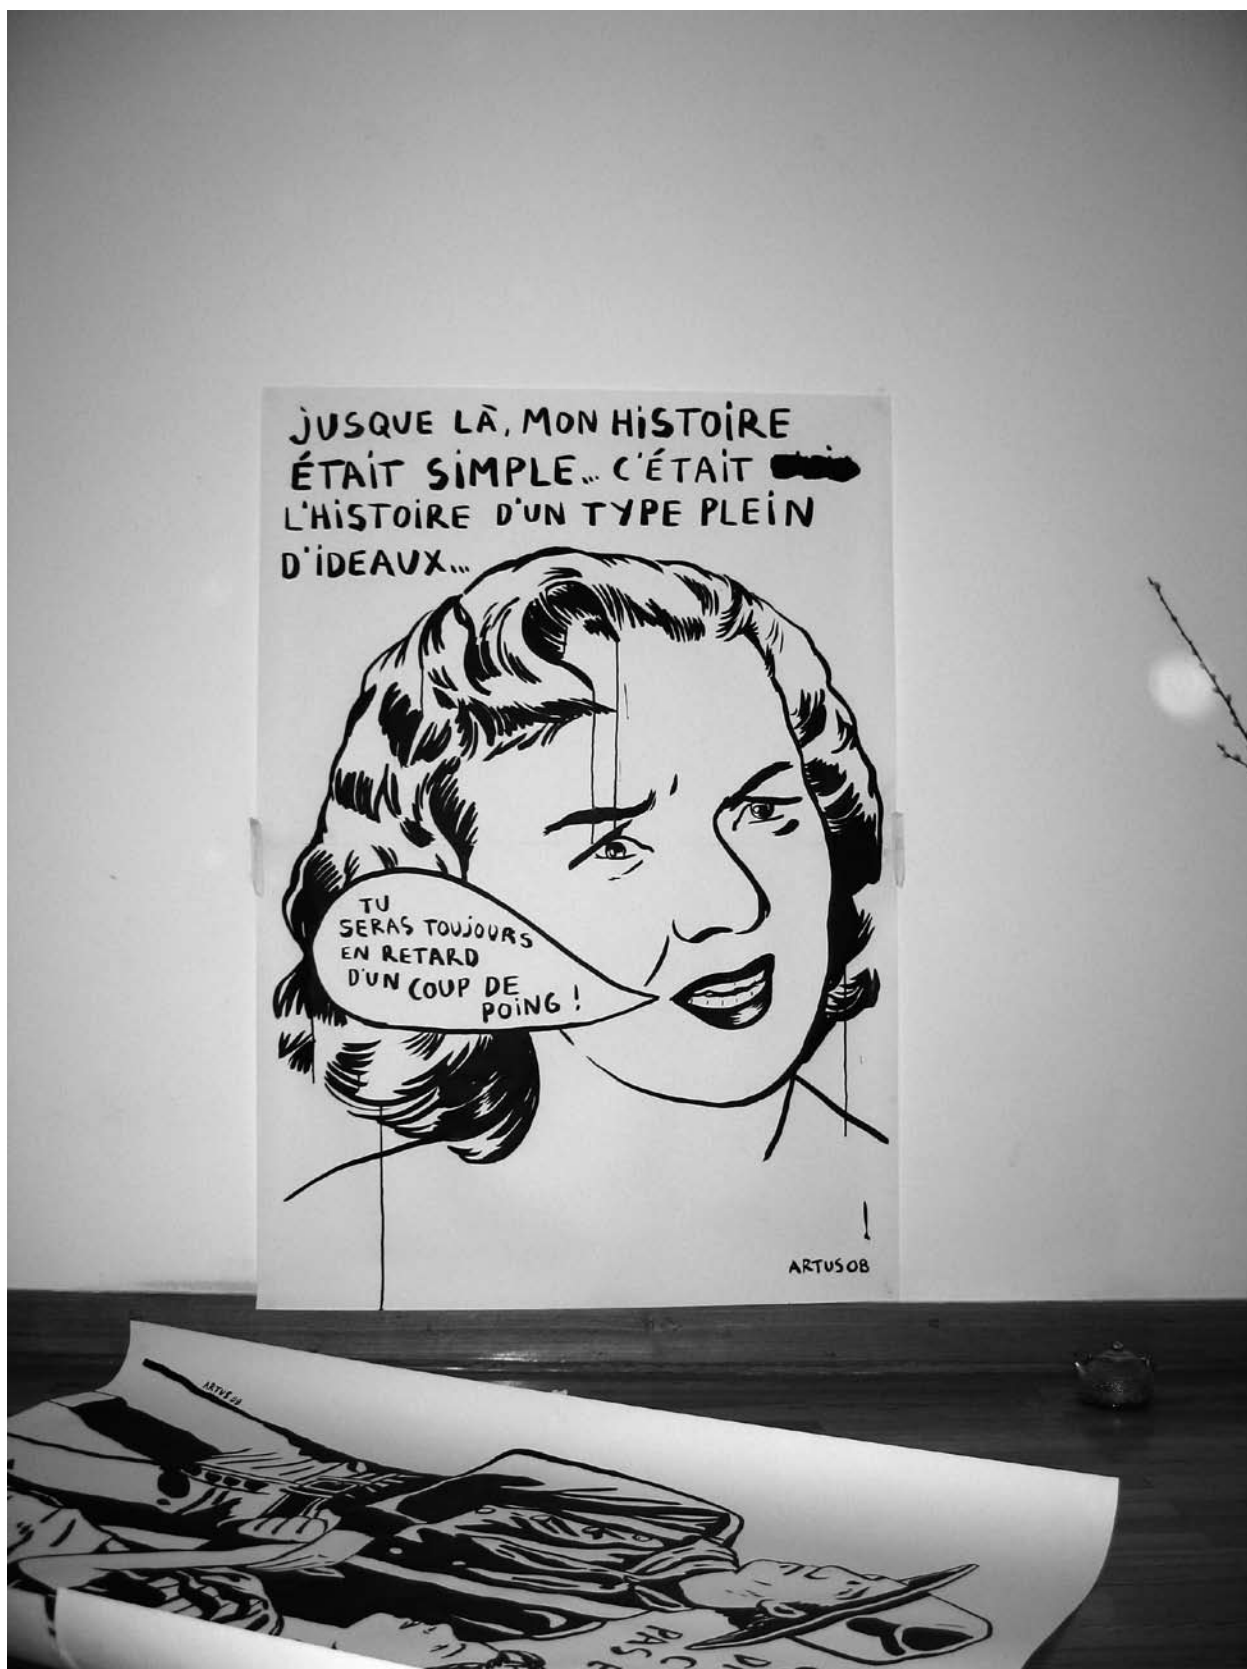 JUSQUE LÀ, MON HISTOIRE
ÉTAIT SIMPLE... C'ÉTAIT
L'HISTOIRE D'UN TYPE PLEIN
D'IDEAUX...
TU
SERAS TOUJOURS
EN RETARD
D'UN COUP DE
POING !
!
ARTUS08
ARTUS 08
PAS